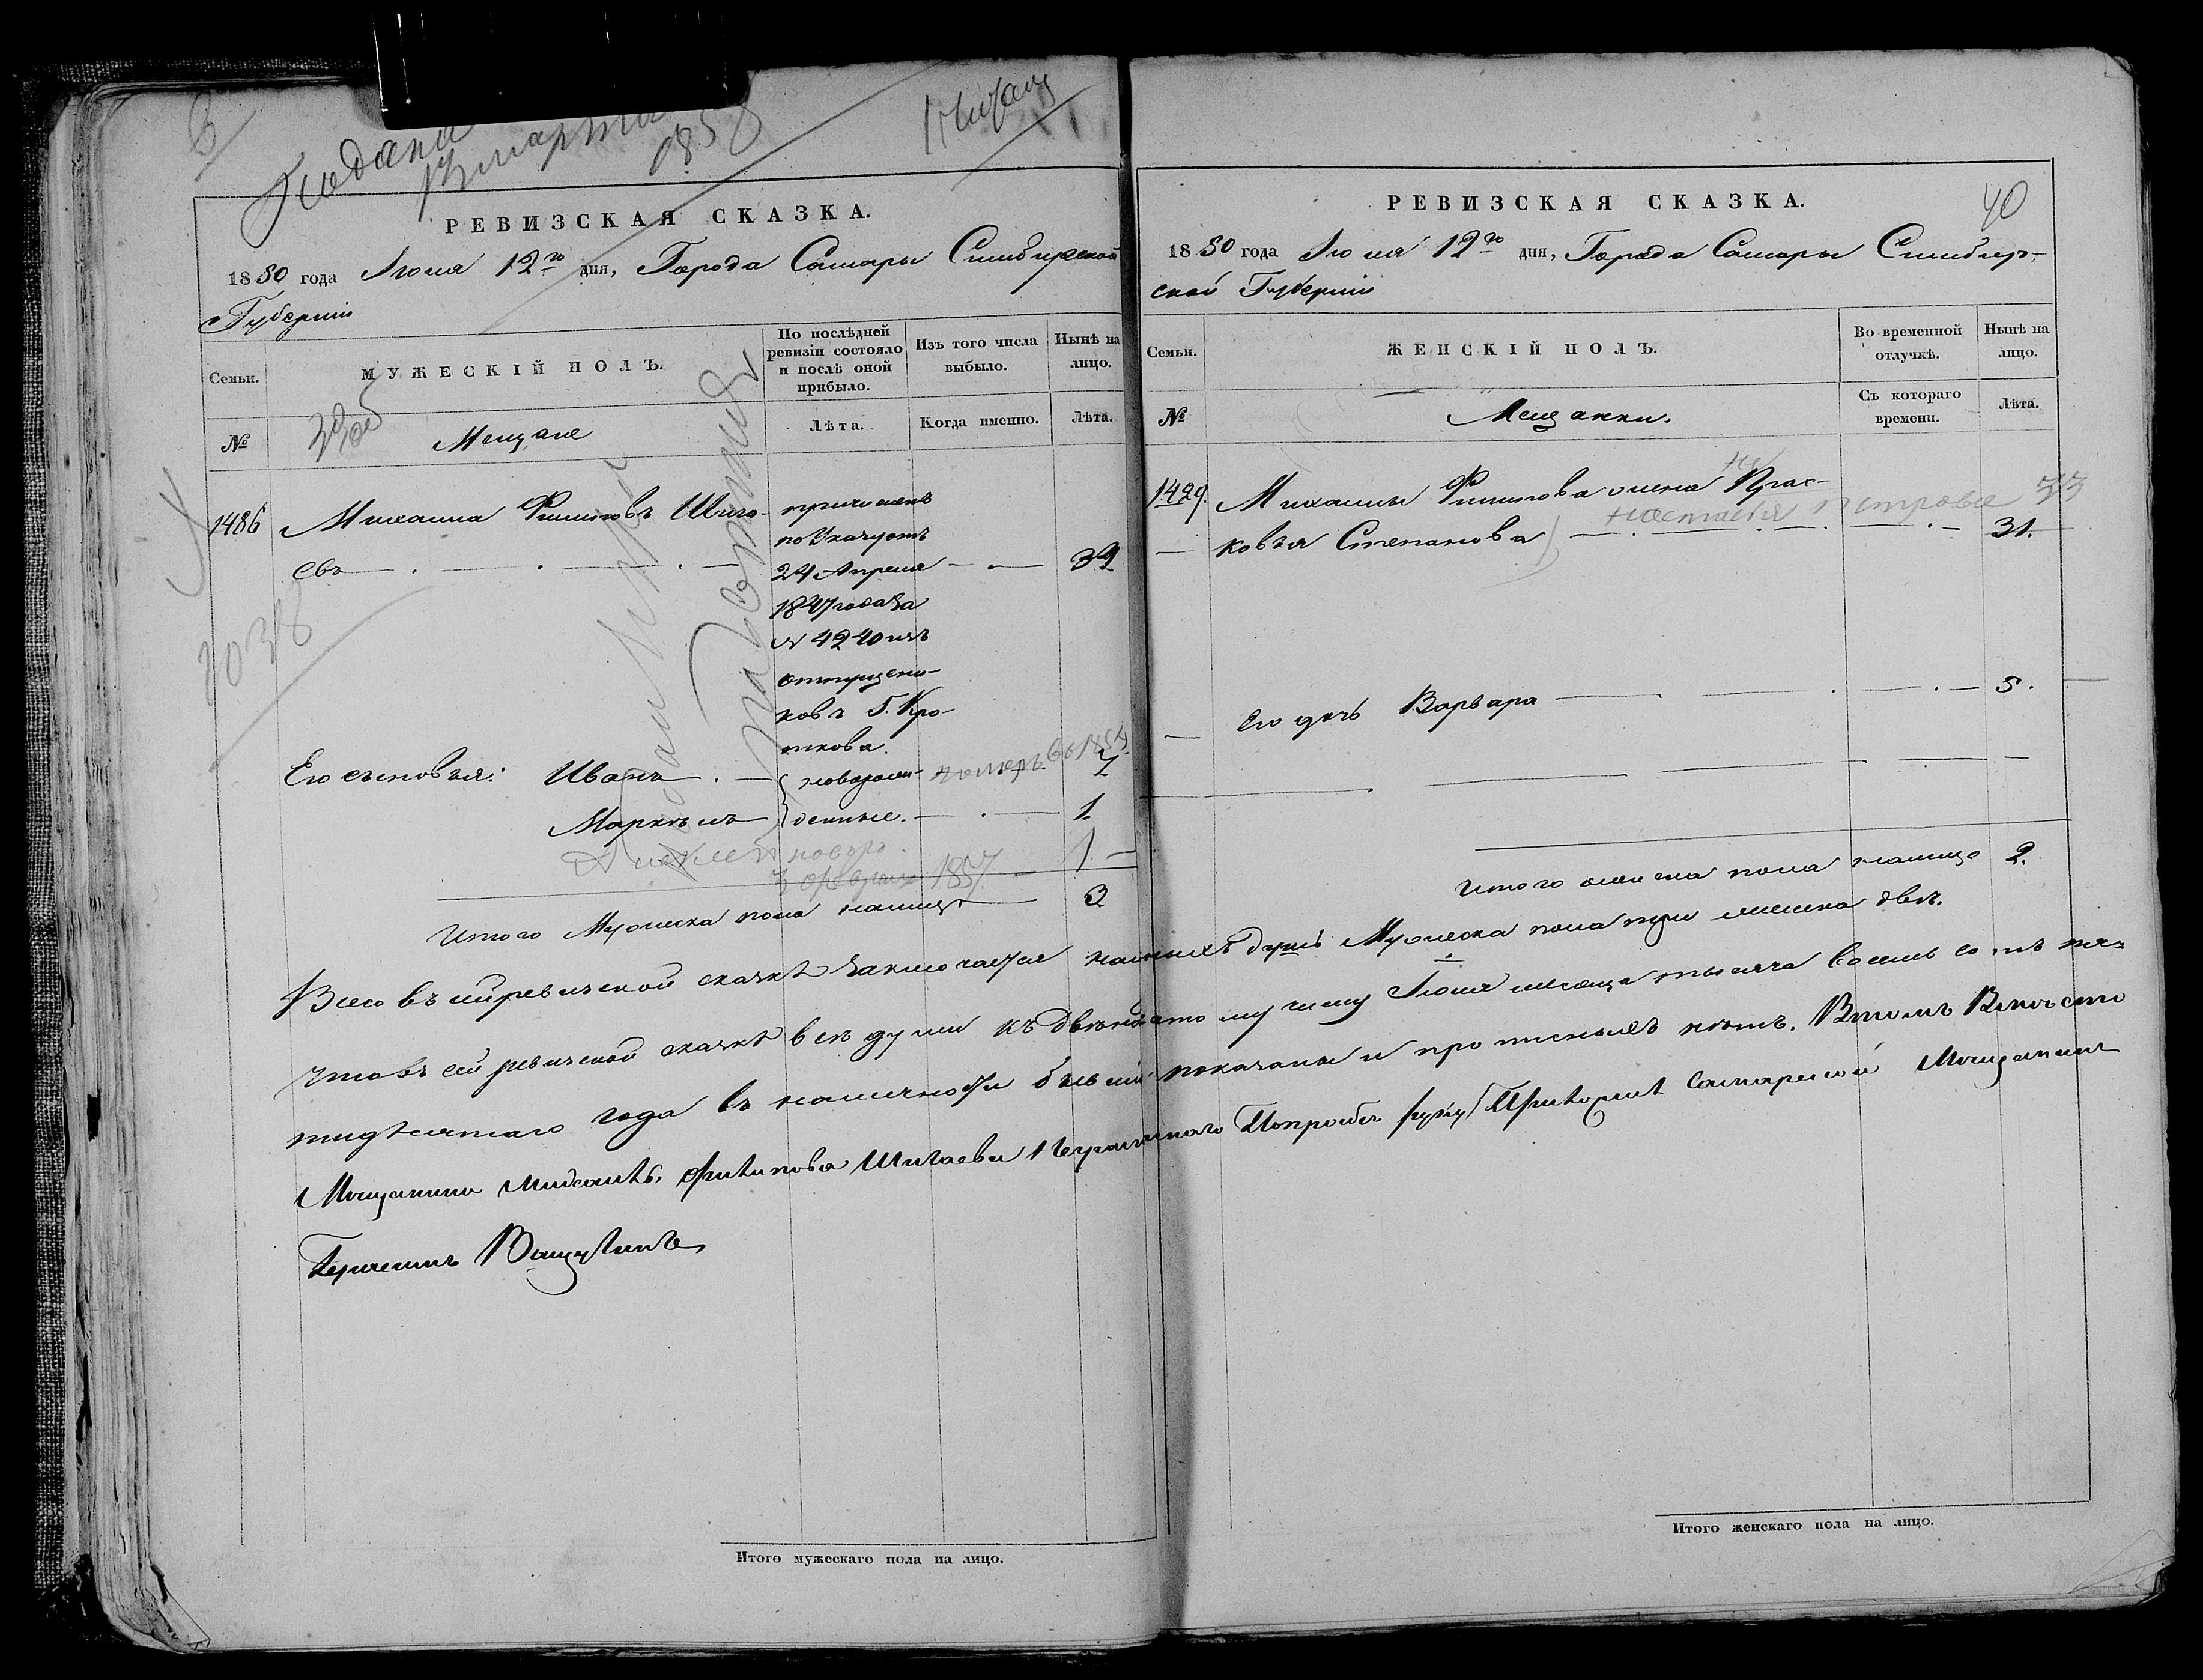 Подана
13 марта
1858
РЕВИЗСКАЯ СКАЗКА.
1850 года Июня 12го дня, Города Самары Симбирской
Губернии
Семьи.
МУЖЕСКІЙ ПОЛЪ.
По послѣдней
ревизіи состояло
и послѣ оной
прибыло.
Изъ того числа
выбыло.
Нынѣ на
лицо.
№
Мещане
Лѣта.
Когда именно.
Лѣта.
1486 Михаила Филиповъ Шига-
евъ 39
причисленъ
по указу отъ
24 Апреля
1847 года за
№ 4240 изъ
отпущени-
ковъ Г. Кро-
ткова.
2038
Его сыновья: Иванъ новорож- 7
Маркелъ денные. 1.
новоро.
1857 1
Итого Мужеска пола налицо 3
РЕВИЗСКАЯ СКАЗКА.
40
1850 года Июня 12го дня, Города Самары Симбир-
ской Губернии
Семьи.
ЖЕНСКІЙ ПОЛЪ.
Во временной
отлучкѣ.
Нынѣ на
лицо.
№
Мещанки.
Съ котораго
времени.
Лѣта.
1429. Михаилы Филипова жена Прас-
ковья Степанова 31.
Настасья Петрова 33
Его дочь Варвара 5.
Итого женска пола налицо 2.
Всего въ сей ревизской сказкѣ заключается наличныхъ душъ Мужеска пола три женска двѣ.
Что въ сей ревизской сказкѣ все души къ двенадцатому числу Июня месяца тысяча восемь сотъ пя-
тидесятаго года въ наличности бывшiй показаны и прописныхъ нѣтъ. Втомъ Вместо
Мещанина Михаилѣ Филипова Шигаева Неграмотнаго Попрозбе руку Приложилъ Самарской Мещанинъ
Итого мужескаго пола на лицо.
Итого женскаго пола на лицо.